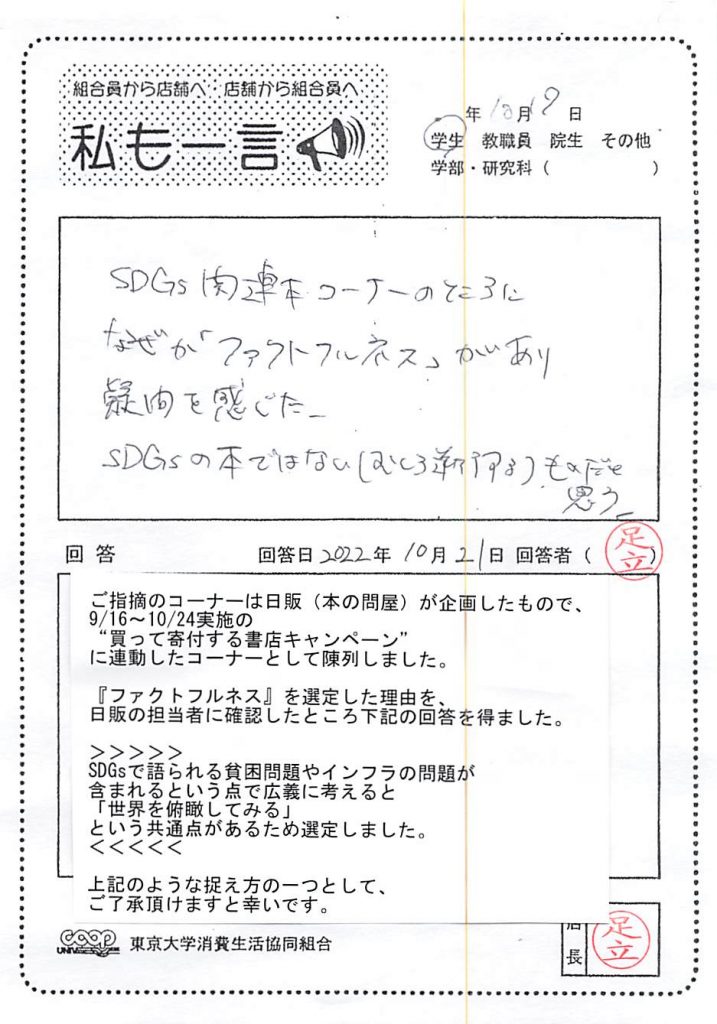 組合員から店舗へ 店舗から組合員へ
私も一言
年10月19日
学生 教職員 院生 その他
学部・研究科( )
SDGs関連本コーナーのところに
なぜか「ファクトフルネス」があり
疑問を感じた。
SDGsの本ではない(むしろ逆行する)ものだと
思う。
回答 回答日2022年10月21日 回答者(足立)
ご指摘のコーナーは日販(本の問屋)が企画したもので、
9/16~10/24実施の
“買って寄付する書店キャンペーン”
に連動したコーナーとして陳列しました。
『ファクトフルネス』を選定した理由を、
日販の担当者に確認したところ下記の回答を得ました。
>>>>>
SDGsで語られる貧困問題やインフラの問題が
含まれるという点で広義に考えると
「世界を俯瞰してみる」
という共通点があるため選定しました。
<<<<<
上記のような捉え方の一つとして、
ご了承頂けますと幸いです。
coop 東京大学消費生活協同組合
店長 足立